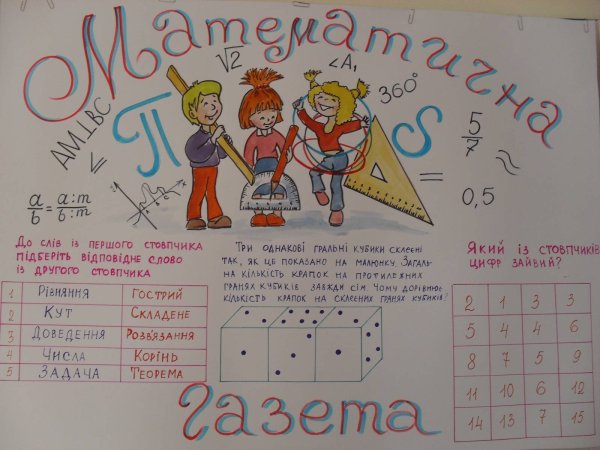 Математична
√2
∠A₁
360°
AM⊥BC
П
S
5/7
≈
=
0,5
≤
a/b = a:m/b:m
До слів із першого стовпчика
підберіть відповідне слово
із другого стовпчика
1 Рівняння Гострий
2 Кут Складене
3 Доведення Розв'язання
4 Числа Корінь
5 Задача Теорема
Три однакові гральні кубики склеєні
так, як це показано на малюнку. Загаль-
на кількість крапок на протилежних
гранях кубиків завжди сім. Чому дорівнює
кількість крапок на склеєних гранях кубиків?
Який із стовпчиків
цифр зайвий?
2 1 3 3
5 4 4 6
8 7 5 9
11 10 6 12
14 13 7 15
Газета